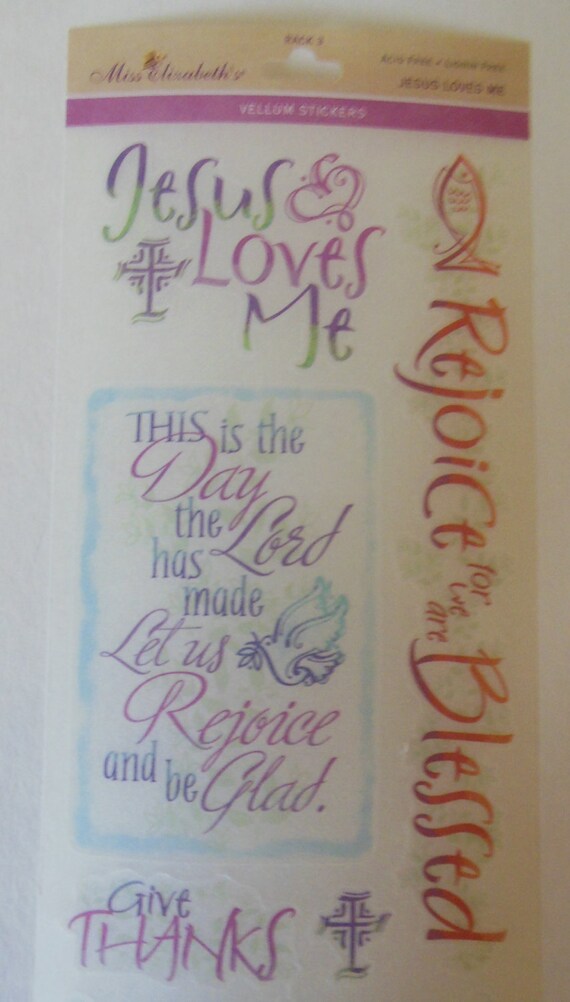 PACK 5
Miss Elizabeth's
ACID FREE • LIGNIN FREE
JESUS LOVES ME
VELLUM STICKERS
Jesus
Loves
Me
Rejoice for we are Blessed
THIS is the
Day
the Lord
has
made
Let us
Rejoice
and be Glad.
Give
THANKS